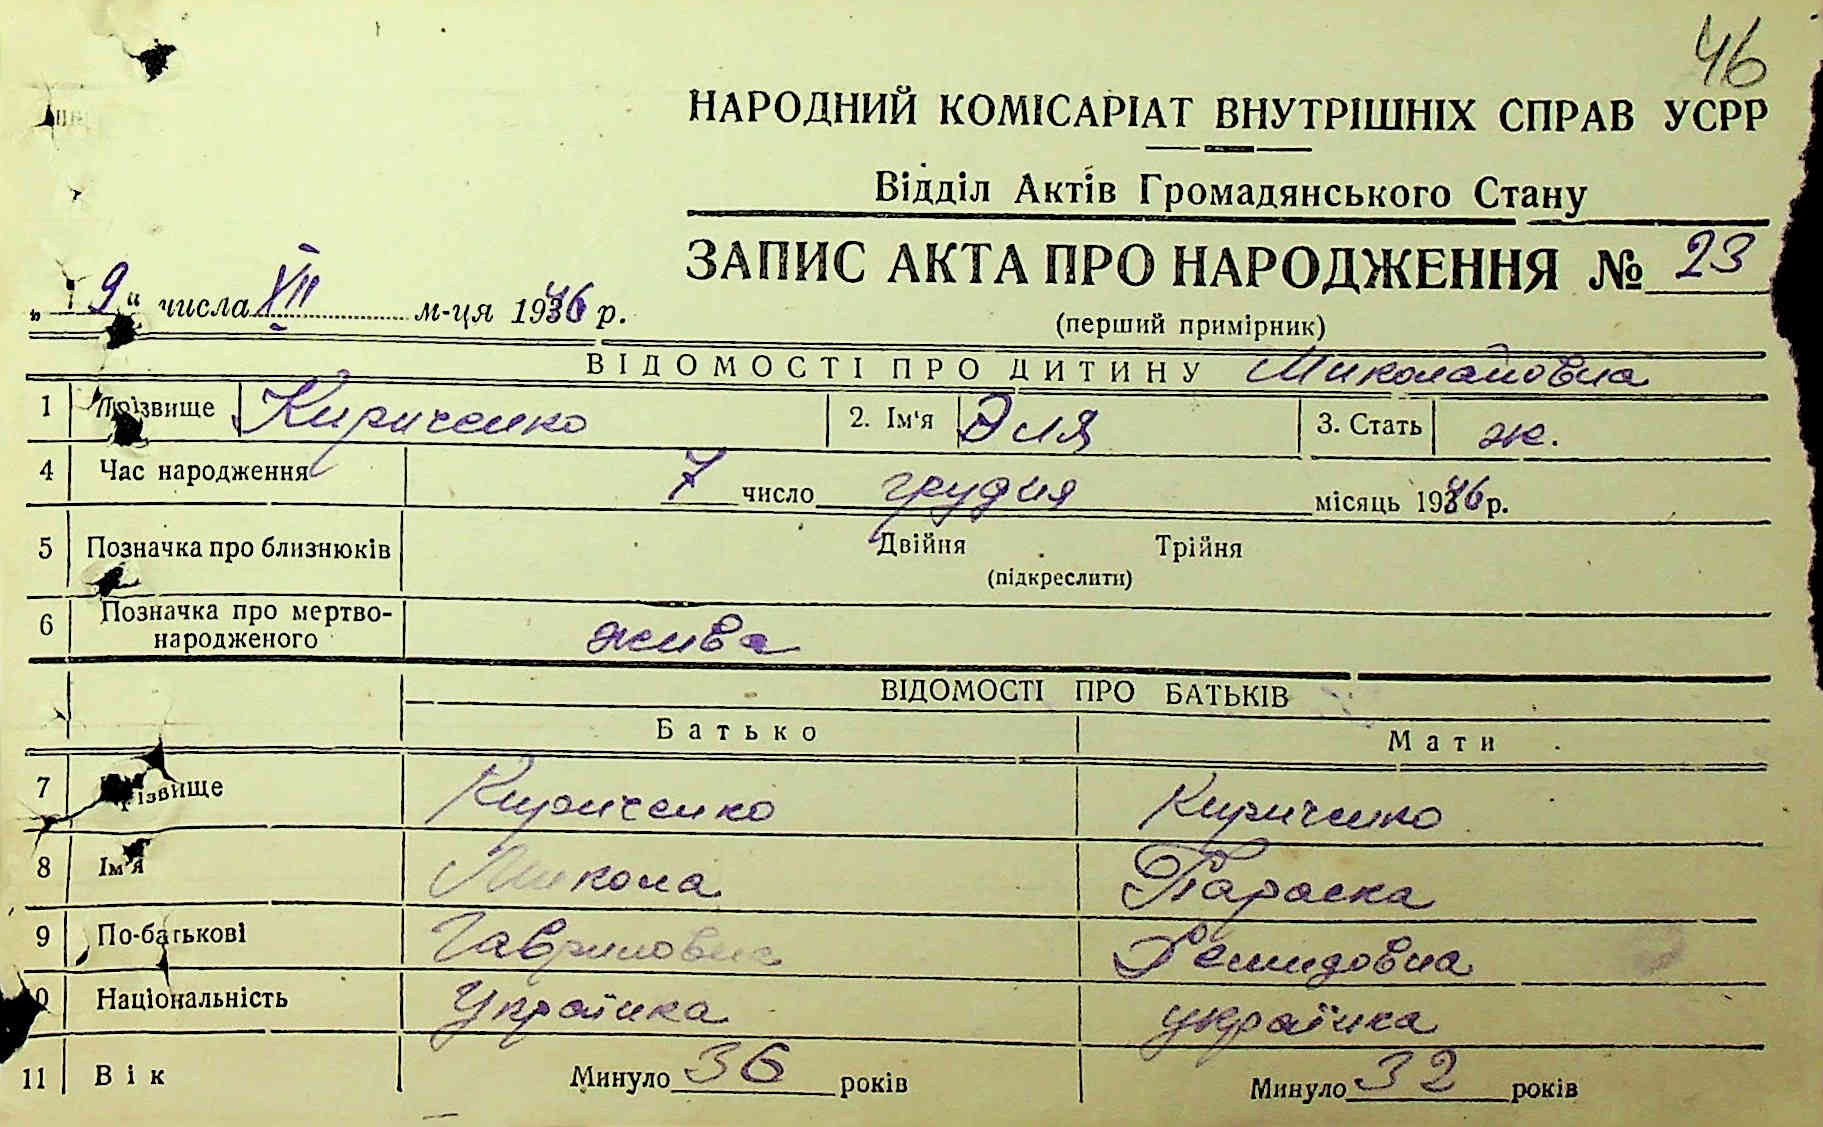 46
НАРОДНИЙ КОМІСАРІАТ ВНУТРІШНІХ СПРАВ УСРР
Відділ Актів Громадянського Стану
ЗАПИС АКТА ПРО НАРОДЖЕННЯ № 23
„ 9 “ числа XII м-ця 1946 р.
(перший примірник)
ВІДОМОСТІ ПРО ДИТИНУ Миколаловна
1 Прізвище Кириченко 2. Ім'я Эля 3. Стать ж.
4 Час народження 7 число грудня місяць 1946 р.
5 Позначка про близнюків Двійня Трійня
(підкреслити)
6 Позначка про мертво-
народженого жива
ВІДОМОСТІ ПРО БАТЬКІВ
Батько Мати
7 Прізвище Кириченко Кириченко
8 Ім'я Микола Параска
9 По-батькові Гавриловна Демидовна
10 Національність Українка українка
11 Вік Минуло 36 років Минуло 32 років